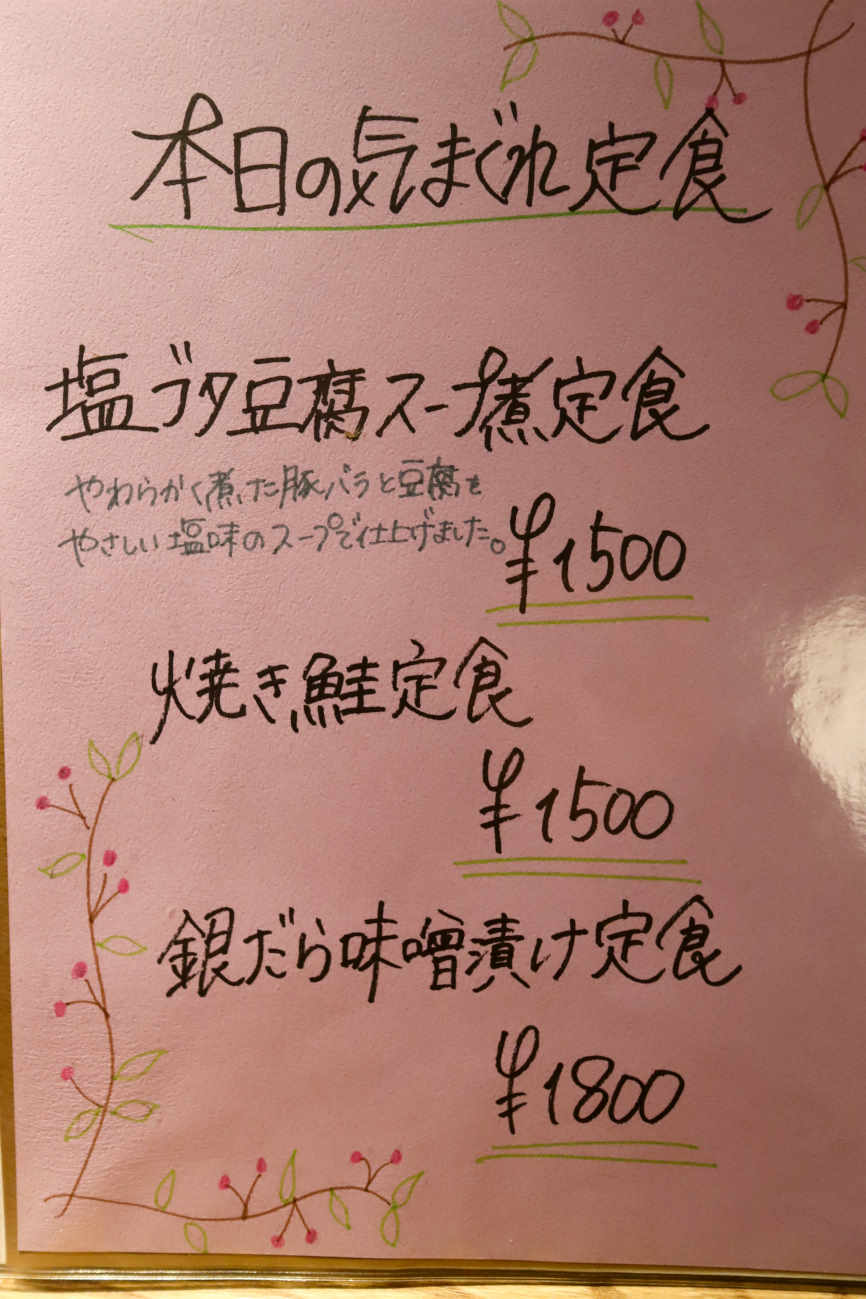 本日の気まぐれ定食
塩ブタ豆腐スープ煮定食
やわらかく煮た豚バラと豆腐を
やさしい塩味のスープで仕上げました。
¥1500
焼き鮭定食
¥1500
銀だら味噌漬け定食
¥1800